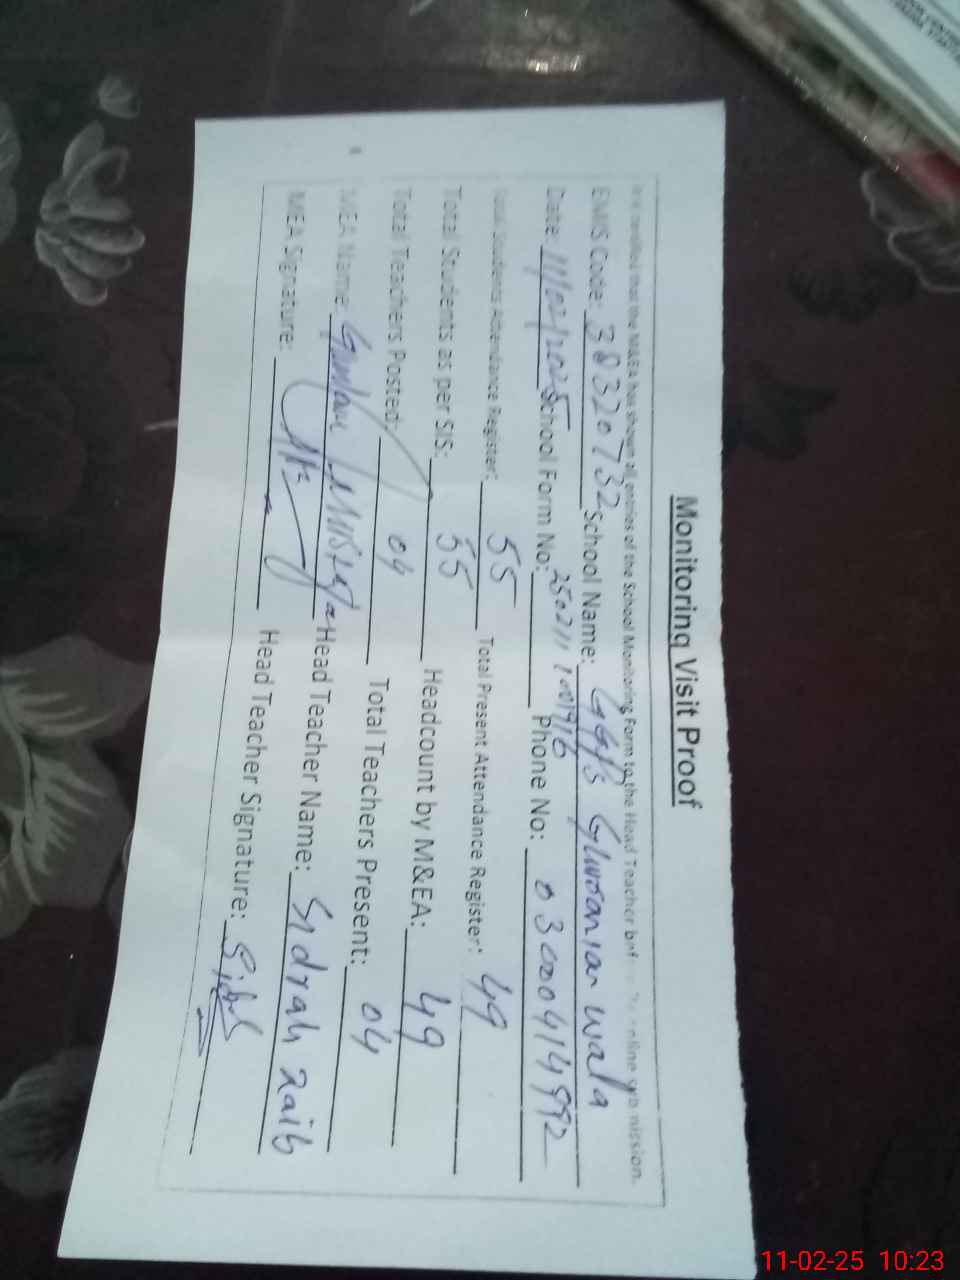 Monitoring Visit Proof
It is certified that the M&EA has shown all entries of the School Monitoring Form to the Head Teacher before online submission.
EMIS Code: 38320732 School Name: GGPS wala
Date: 11/02/2025 School Form No: Phone No:
Total Students Attendance Register: 55 Total Present Attendance Register: 49
Total Students as per SIS: 55 Headcount by M&EA: 49
Total Teachers Posted: 04 Total Teachers Present: 04
MEA Name: Ghulam Mustafa Head Teacher Name: Sidrah zaib
MEA Signature: Head Teacher Signature:
11-02-25 10:23